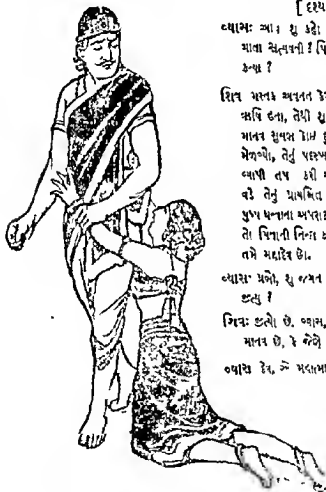 [દૃશ્ય
વ્યાસઃ આ શુ કહો
માતા સત્યવતી ? પિ
કન્યા ?
શિવ મસ્તક અવનત કરે
ઋષિ હતા, તેથી શુ
માનવ સુલભ કોઈ
મેળવ્યો, તેનું
વ્યાપી તપ કરી
વડે તેનું પ્રાયશ્ચિત
પુષ્પ ધન્વાના અપરાધ
તો પિતાની નિન્દા ક
તમે મહાદેવ છો.
વ્યાસઃ પ્રભો, શુ જગત
જીત્યુ ?
શિવઃ જીત્યો છે. વ્યાસ,
માનવ છે, કે જેણે
વ્યાસ દેવ, એ મહાત્મા